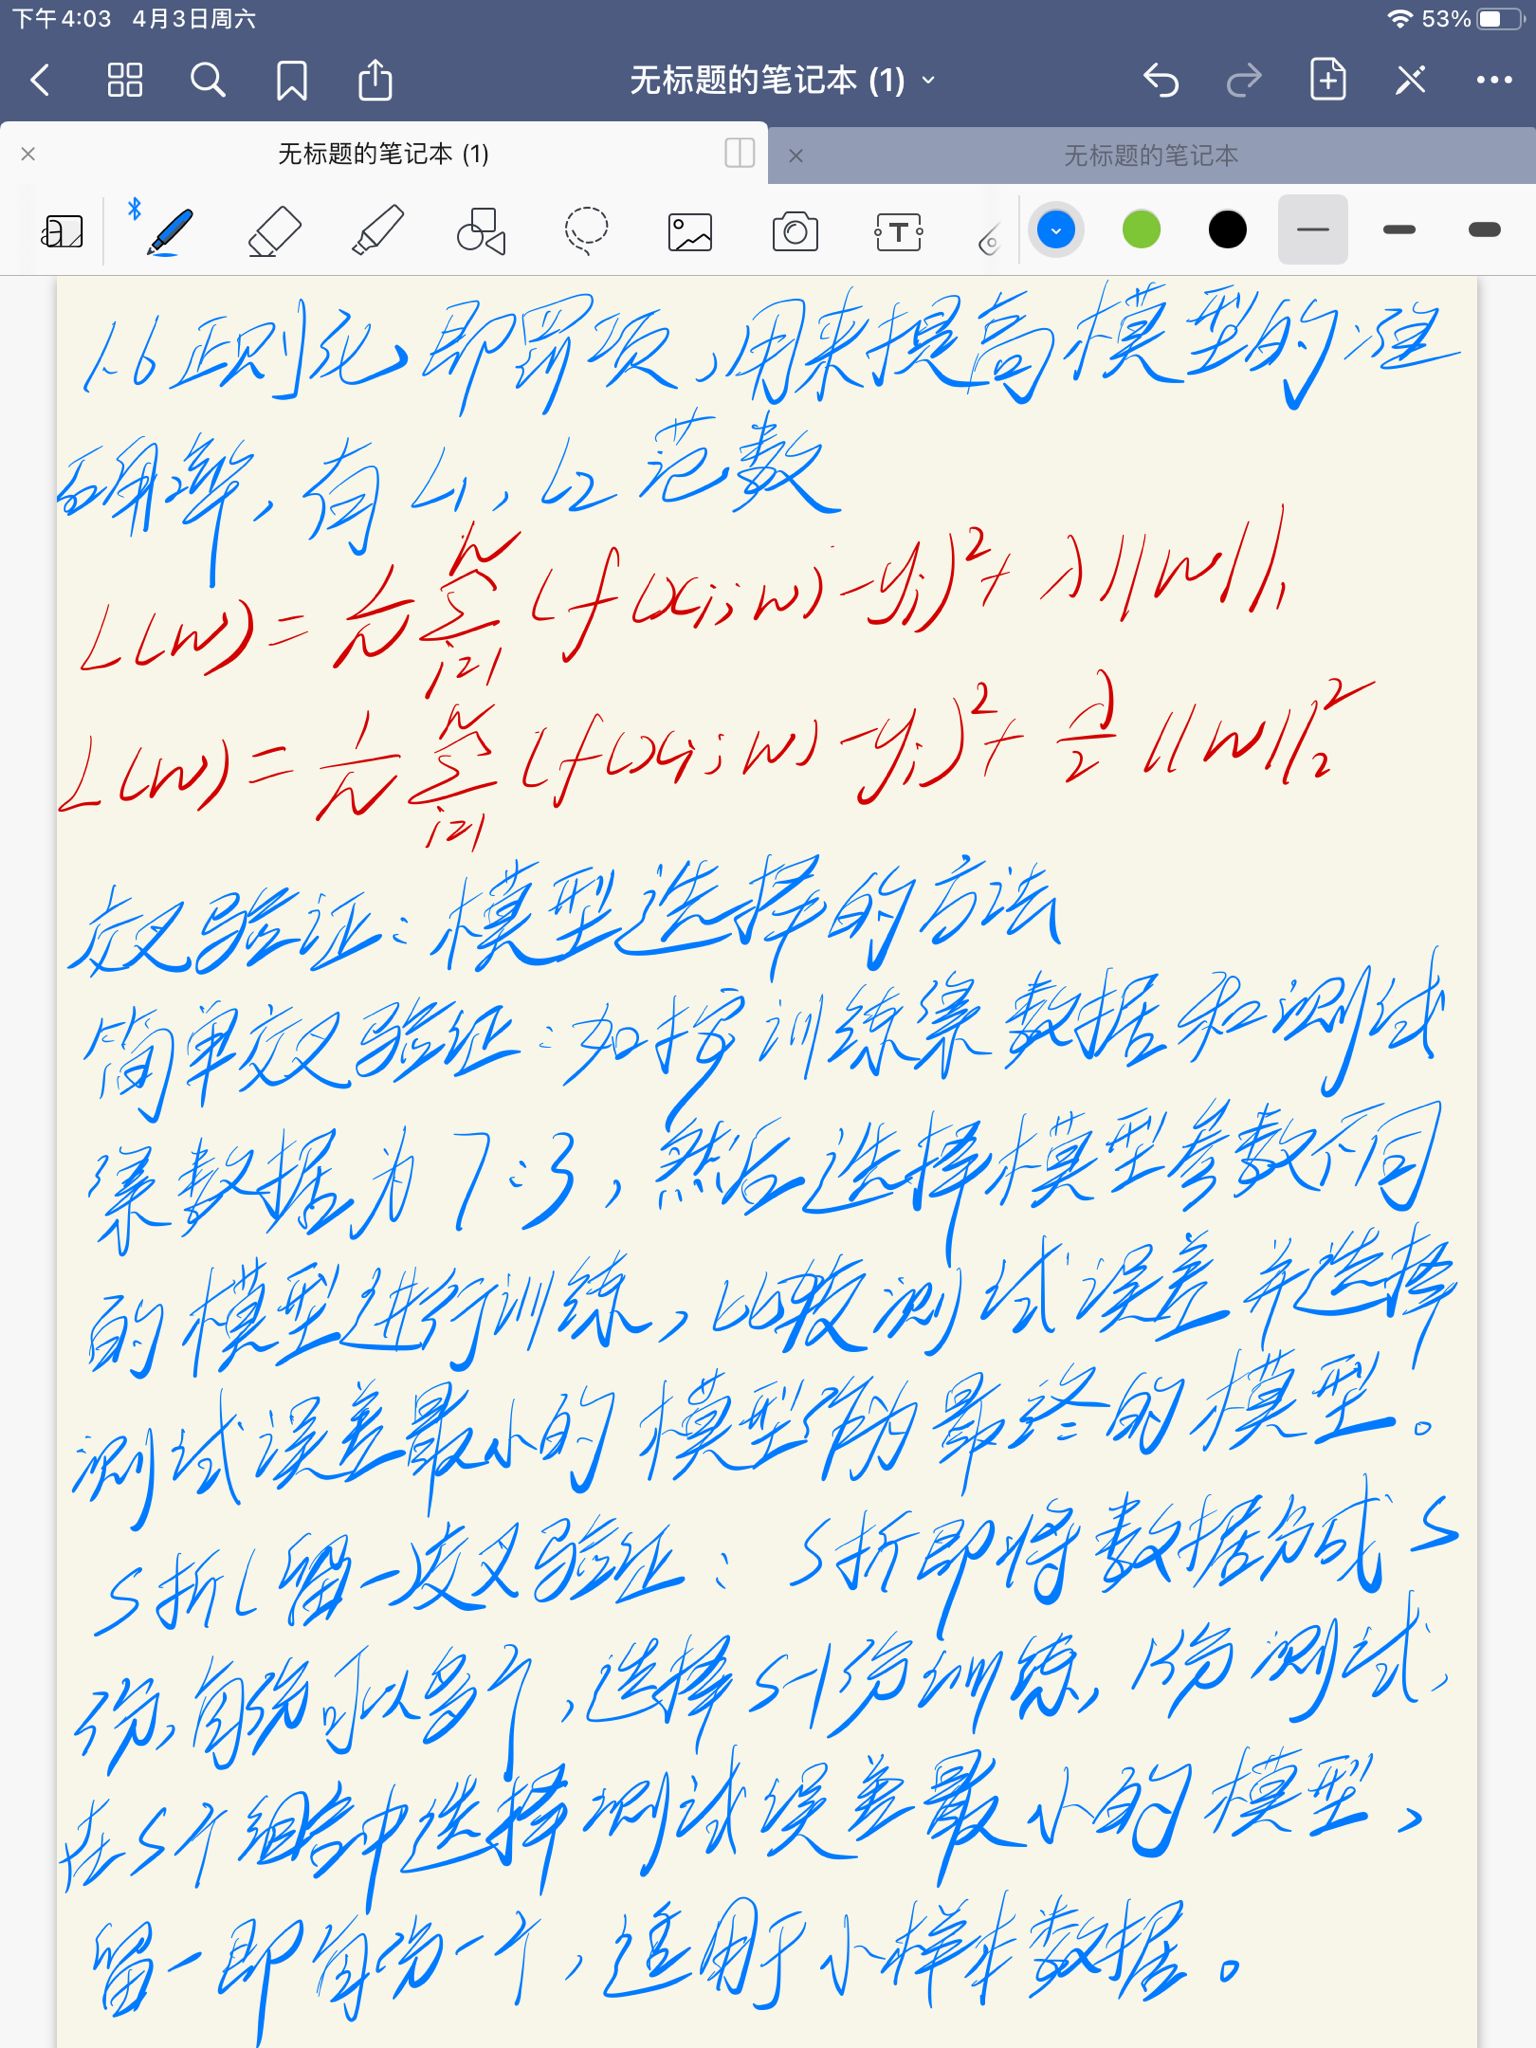 下午4:03 4月3日周六 53%
无标题的笔记本 (1)
无标题的笔记本 (1) 无标题的笔记本
1.6 正则化,即罚项,用来提高模型的准
确率,有 L1, L2 范数
L(w) = 1/N ∑_{i=1}^{N} (f(xi; w) - yi)² + λ||w||₁
L(w) = 1/N ∑_{i=1}^{N} (f(xi; w) - yi)² + λ/2 ||w||₂²
交叉验证: 模型选择的方法
简单交叉验证: 如按训练集数据和测试
集数据为 7:3, 然后选择模型参数不同
的模型进行训练, 比较测试误差并选择
测试误差最小的模型作为最终的模型。
S折(留一)交叉验证: S折即将数据分成 S
份,每份可以多个, 选择 S-1份训练, 1份测试,
在 S个组合中选择测试误差最小的模型,
留一即每份一个, 适用于小样本数据。